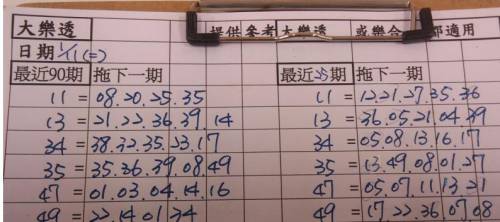 大樂透 提供參考大樂透 或樂合 都適用
日期 1/11 (二)
最近90期 拖下一期 最近25期 拖下一期
11 = 08.20.25.35 11 = 12.21.27.35.36
13 = 21.22.36.39.14 13 = 36.05.21.04.39
34 = 38.32.35.23.17 34 = 05.08.13.16.17
35 = 35.36.39.08.49 35 = 13.49.08.01.27
47 = 01.03.04.14.16 47 = 05.07.11.13.21
49 = 22.14.01.34 49 = 17.22.36.07.08